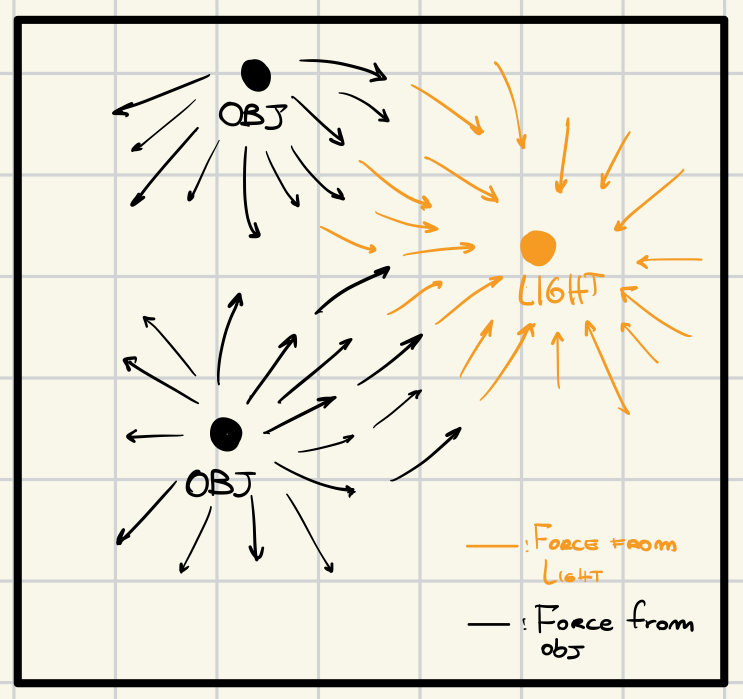 OBJ
LIGHT
OBJ
: FORCE FROM
LIGHT
: Force from
obj